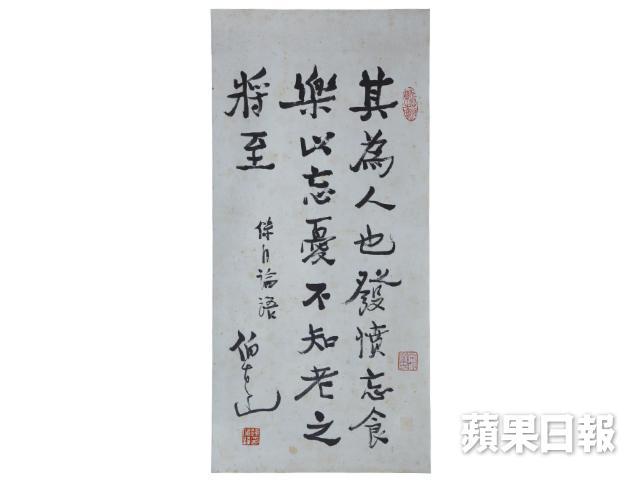 其為人也發憤忘食
樂以忘憂不知老之
將至
論語
蘋果日報